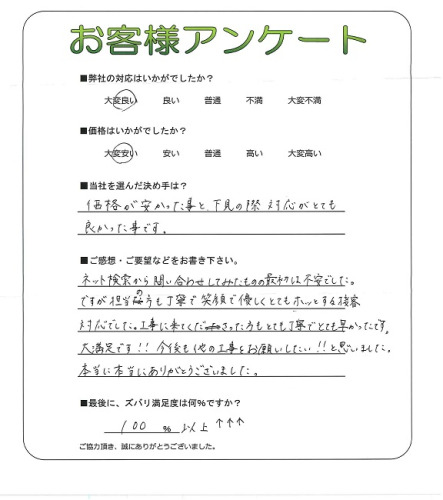 お客様アンケート
■弊社の対応はいかがでしたか？
大変良い 良い 普通 不満 大変不満
■価格はいかがでしたか？
大変安い 安い 普通 高い 大変高い
■当社を選んだ決め手は？
価格が安かった事と、下見の際 対応がとても
良かった事です。
■ご感想・ご要望などをお書き下さい。
ネット検索から問い合わせしてみたものの最初は不安でした。
ですが担当の方も丁寧で笑顔で優しくとてもホッとする接客
対応でした。工事に来てくださった方もとても丁寧でとても早かったです。
大満足です!! 今後も他の工事をお願いしたい!!と思いました。
本当に本当にありがとうございました。
■最後に、ズバリ満足度は何％ですか？
100 ％ 以上 ↑↑↑
ご協力頂き、誠にありがとうございました。